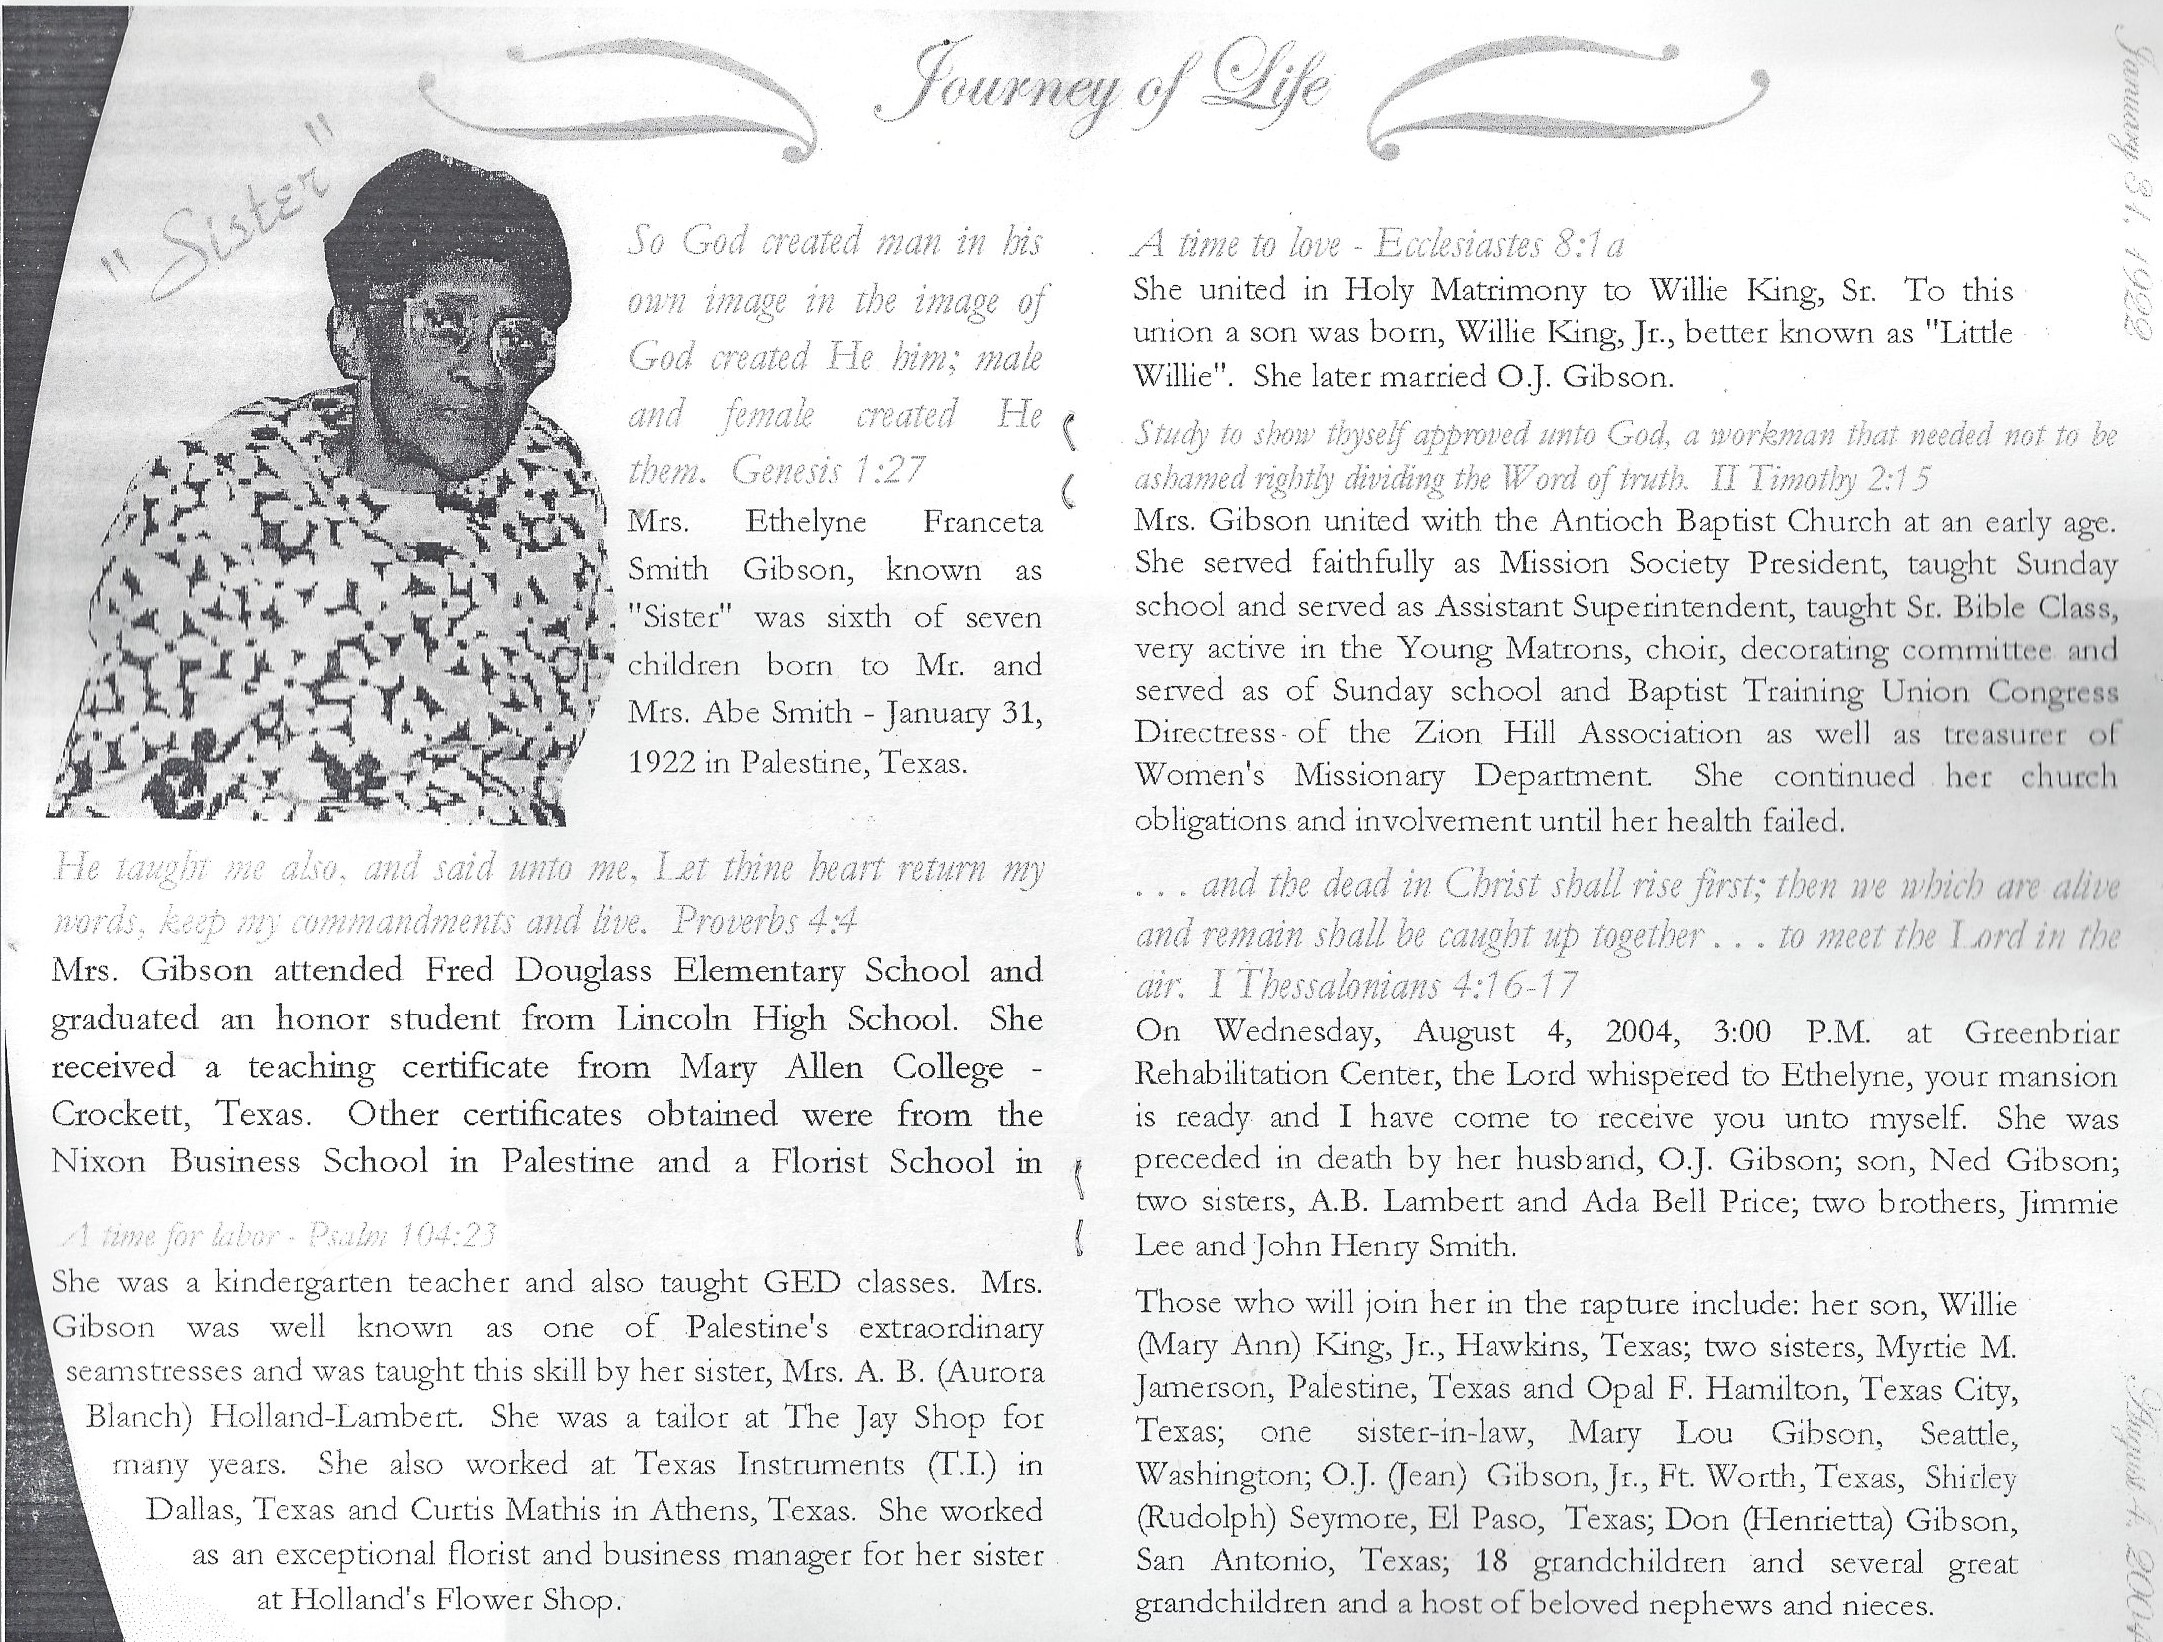 Journey of Life
"Sister"
So God created man in his
own image in the image of
God created He him; male
and female created He
them. Genesis 1:27
Mrs. Ethelyne Franceta
Smith Gibson, known as
"Sister" was sixth of seven
children born to Mr. and
Mrs. Abe Smith - January 31,
1922 in Palestine, Texas.
He taught me also, and said unto me, Let thine heart return my
words, keep my commandments and live. Proverbs 4:4
Mrs. Gibson attended Fred Douglass Elementary School and
graduated an honor student from Lincoln High School. She
received a teaching certificate from Mary Allen College -
Crockett, Texas. Other certificates obtained were from the
Nixon Business School in Palestine and a Florist School in
A time for labor - Psalm 104:23
She was a kindergarten teacher and also taught GED classes. Mrs.
Gibson was well known as one of Palestine's extraordinary
seamstresses and was taught this skill by her sister, Mrs. A. B. (Aurora
Blanch) Holland-Lambert. She was a tailor at The Jay Shop for
many years. She also worked at Texas Instruments (T.I.) in
Dallas, Texas and Curtis Mathis in Athens, Texas. She worked
as an exceptional florist and business manager for her sister
at Holland's Flower Shop.
A time to love - Ecclesiastes 8:1a
She united in Holy Matrimony to Willie King, Sr. To this
union a son was born, Willie King, Jr., better known as "Little
Willie". She later married O.J. Gibson.
Study to show thyself approved unto God, a workman that needed not to be
ashamed rightly dividing the Word of truth. II Timothy 2:15
Mrs. Gibson united with the Antioch Baptist Church at an early age.
She served faithfully as Mission Society President, taught Sunday
school and served as Assistant Superintendent, taught Sr. Bible Class,
very active in the Young Matrons, choir, decorating committee and
served as of Sunday school and Baptist Training Union Congress
Directress of the Zion Hill Association as well as treasurer of
Women's Missionary Department. She continued her church
obligations and involvement until her health failed.
. . . and the dead in Christ shall rise first; then we which are alive
and remain shall be caught up together . . . to meet the Lord in the
air. I Thessalonians 4:16-17
On Wednesday, August 4, 2004, 3:00 P.M. at Greenbriar
Rehabilitation Center, the Lord whispered to Ethelyne, your mansion
is ready and I have come to receive you unto myself. She was
preceded in death by her husband, O.J. Gibson; son, Ned Gibson;
two sisters, A.B. Lambert and Ada Bell Price; two brothers, Jimmie
Lee and John Henry Smith.
Those who will join her in the rapture include: her son, Willie
(Mary Ann) King, Jr., Hawkins, Texas; two sisters, Myrtie M.
Jamerson, Palestine, Texas and Opal F. Hamilton, Texas City,
Texas; one sister-in-law, Mary Lou Gibson, Seattle,
Washington; O.J. (Jean) Gibson, Jr., Ft. Worth, Texas, Shirley
(Rudolph) Seymore, El Paso, Texas; Don (Henrietta) Gibson,
San Antonio, Texas; 18 grandchildren and several great
grandchildren and a host of beloved nephews and nieces.
January 31, 1922
August 4, 2004